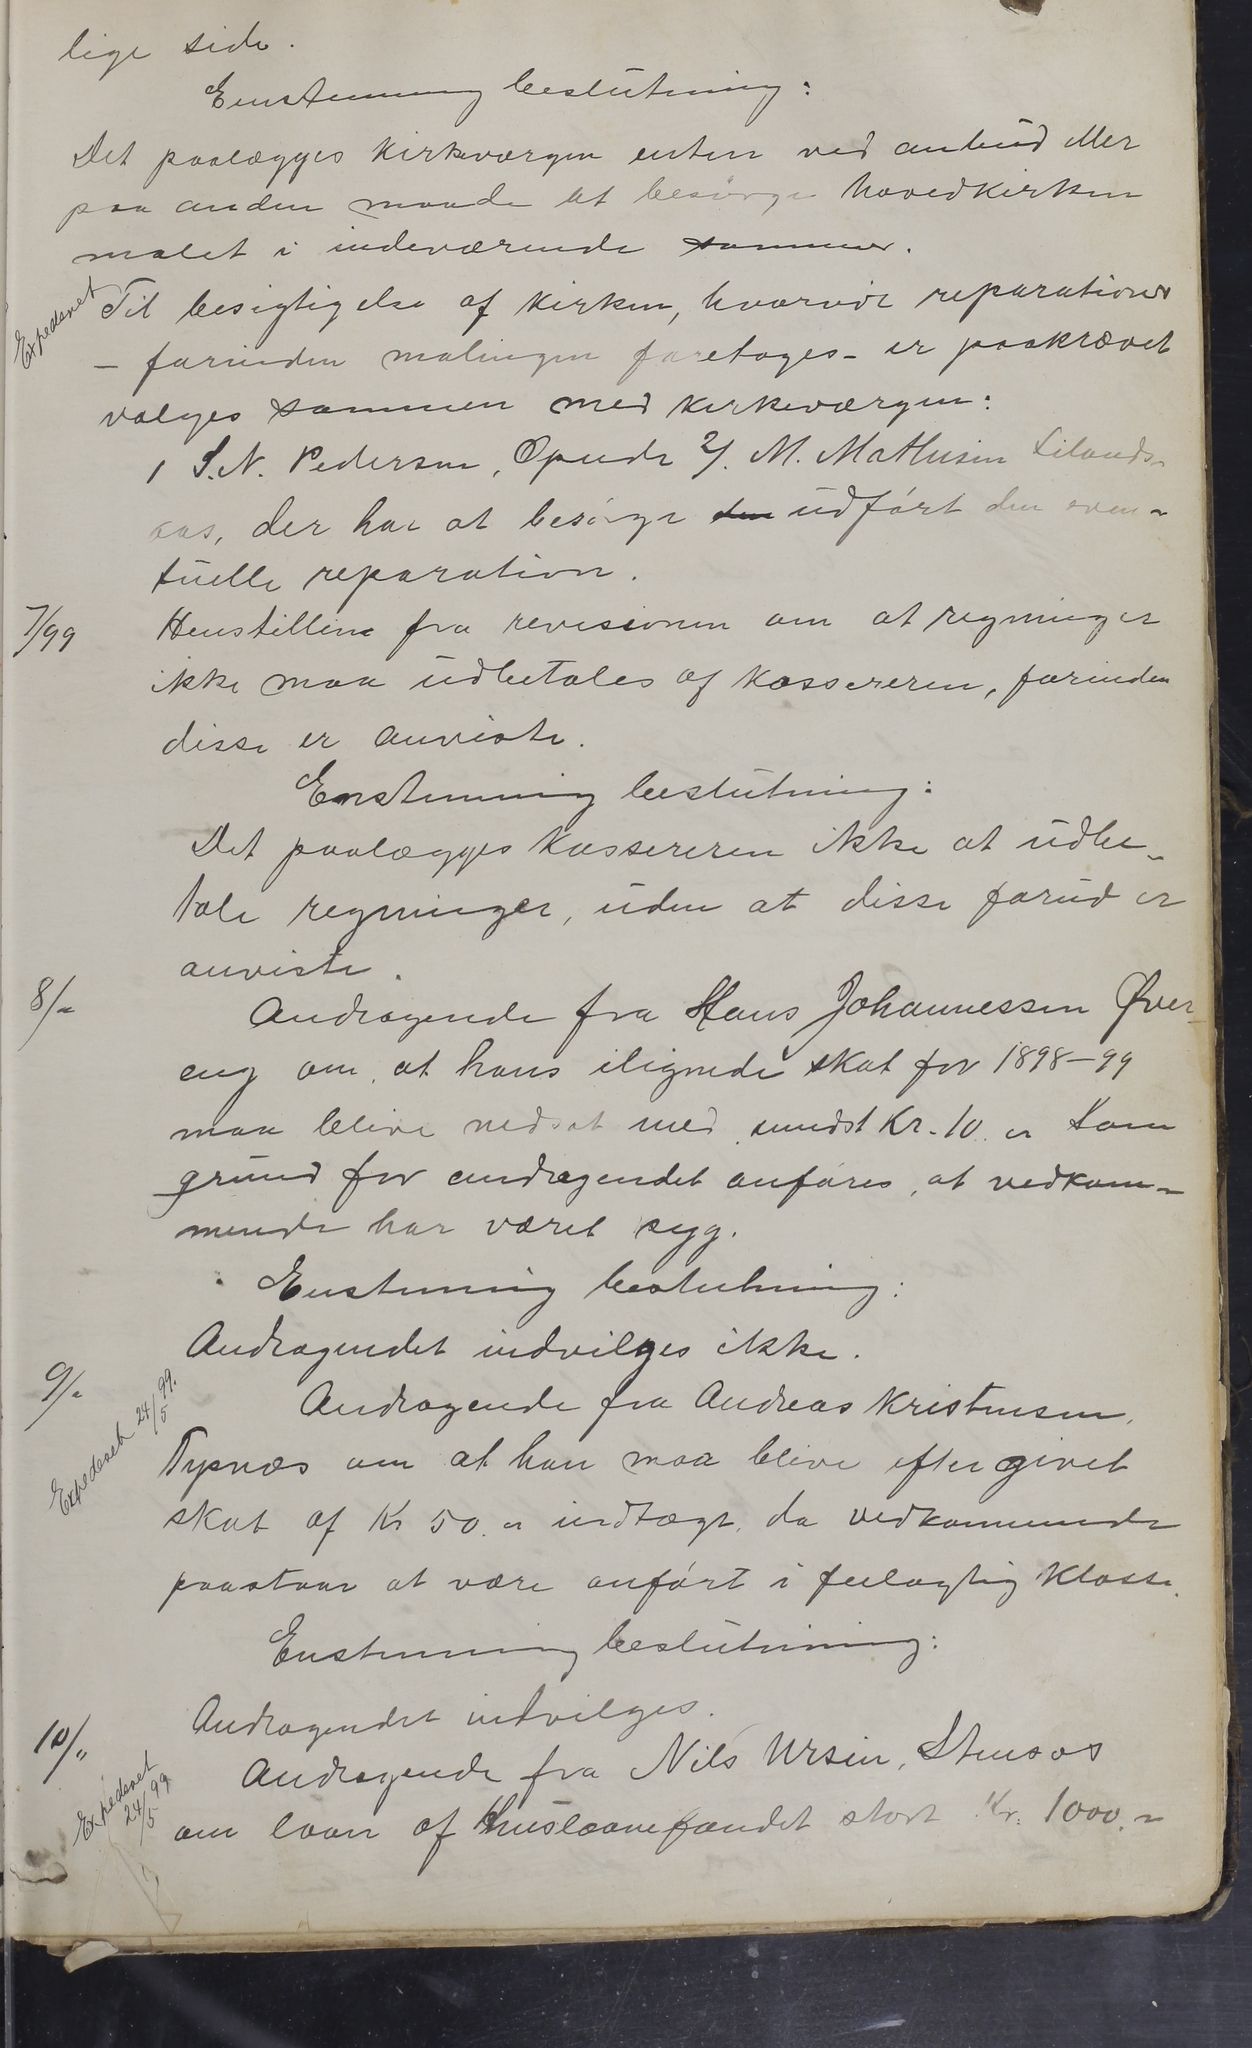 lige side.
Enstemmig beslutning:
Det paalægges kirkeværgen enten ved anbud eller
paa anden maade at besörge hovedkirken
malet i indeværende sommer.
Expederet
Til besigtigelse af kirken, hvorvidt reparationer
- forinden malingen foretages - er paakrævet
vælges sammen med kirkeværgen:
1 S. N. Pedersen, Opeide 2/. M. Mathisen Lilands-
aas, der har at besörge den udfört den even-
tuelle reparation.
7/99
Henstilling fra revisionen om at regninger
ikke maa udbetales af kassereren, forinden
disse er anviste.
Enstemmig beslutning:
Det paalægges kassereren ikke at udbe-
tale regninger, uden at disse forud er
anviste.
8/"
Andragende fra Hans Johannessen Øver-
eng om, at hans ilignede skat for 1898-99
maa blive nedsat med mindst Kr. 10."  Som
grund for andragendet anföres, at vedkom-
mende har været syg.
Enstemmig beslutning:
Andragendet indvilges ikke.
9/"
Expederet 24/5 99.
Andragende fra Andreas Kristensen,
Tysnes om at han maa blive eftergivet
skat af Kr 50." indtægt, da vedkommende
paastaar at være anfört i feilagtig klasse.
Enstemmig beslutning:
Andragendet indvilges.
10/"
Expederet 24/5 99
Andragende fra Nils Ursin, Stensos
om laan af Huslaanefondet stort Kr. 1000."